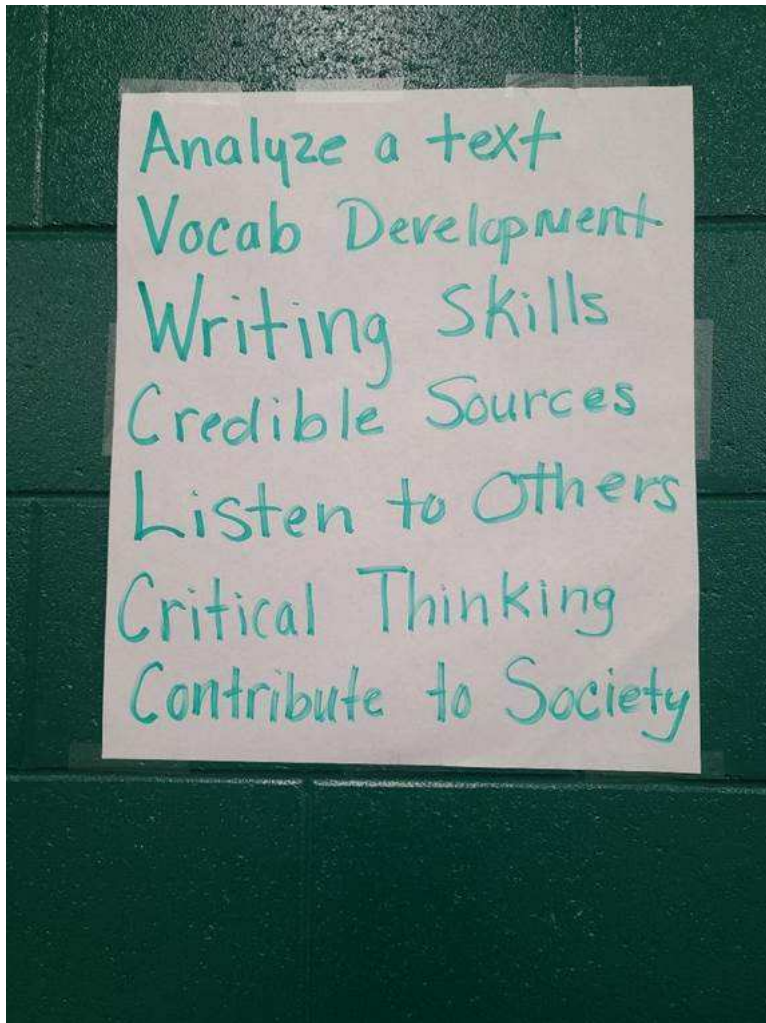 Analyze a text
Vocab Development
Writing Skills
Credible Sources
Listen to Others
Critical Thinking
Contribute to Society